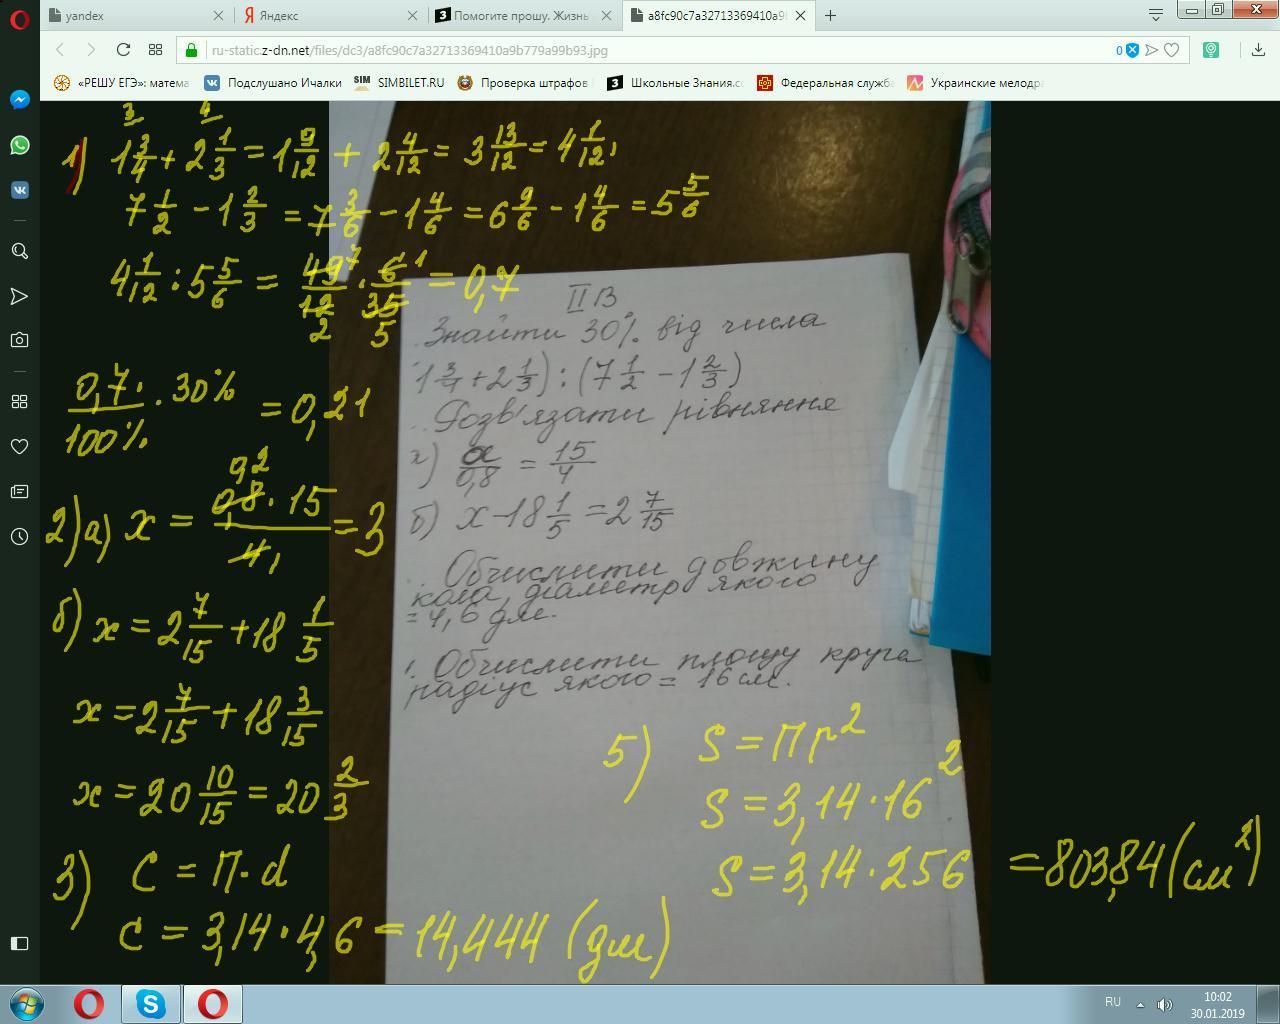 yandex
Яндекс
Помогите прошу. Жизнь
a8fc90c7a32713369410a9
ru-static.z-dn.net/files/dc3/a8fc90c7a32713369410a9b779a99b93.jpg
0
«РЕШУ ЕГЭ»: матема
Подслушано Ичалки
SIM SIMBILET.RU
Проверка штрафов
Школьные Знания.co
Федеральная служба
Украинские мелодра
3 4
1) 1 3/4 + 2 1/3 = 1 9/12 + 2 4/12 = 3 13/12 = 4 1/12,
7 1/2 - 1 2/3 = 7 3/6 - 1 4/6 = 6 9/6 - 1 4/6 = 5 5/6
4 1/12 : 5 5/6 = 49 7/12 2 · 6 1/35 5 = 0,7
0,7·/100% · 30% = 0,21
2) а) x = 0,8 · 15/4 = 3
0,2
1
б) x = 2 7/15 + 18 1/5
x = 2 7/15 + 18 3/15
x = 20 10/15 = 20 2/3
3) C = П · d
C = 3,14 · 4,6 = 14,444 (дм)
II В
Знайти 30% від числа
1 3/4 + 2 1/3) : (7 1/2 - 1 2/3)
Розв'язати рівняння
а) x/0,8 = 15/4
б) x - 18 1/5 = 2 7/15
Обчислити довжину
кола, діаметр якого
= 4,6 дм.
Обчислити площу круга
радіус якого = 16 см.
5) S = П r²
S = 3,14 · 16²
S = 3,14 · 256 = 803,84 (см²)
RU
10:02
30.01.2019